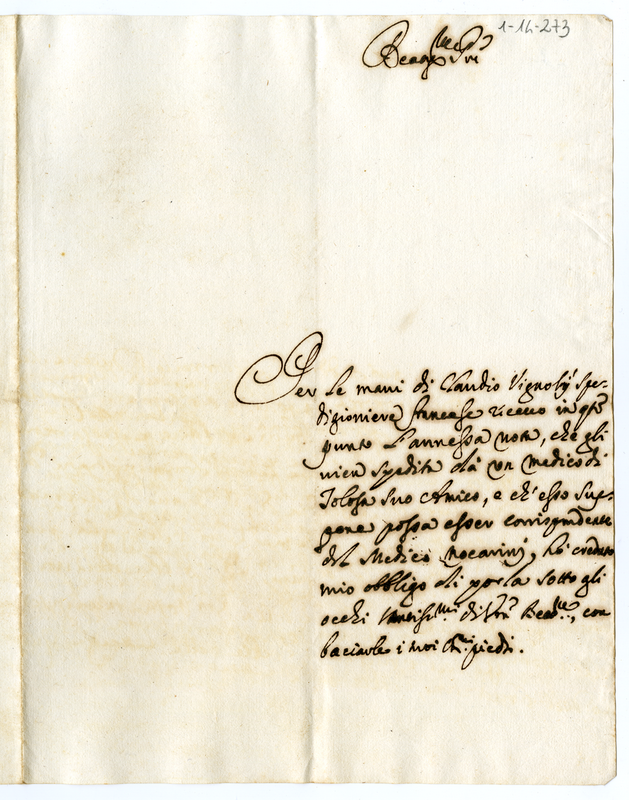 1-14-273
Per le mani di Claudio Vignolij spe-
digioniere francese ricevo in qsto
punto l'annessa nota, che gli
vien spedita da un medico di
Tolosa suo Amico, e ch'esso sup-
pone possa esser corrispondente
del Medico, hò creduto
mio obbligo di porla sotto gli
occhi di Vra Beadne, con
baciarle i suoi piedi.